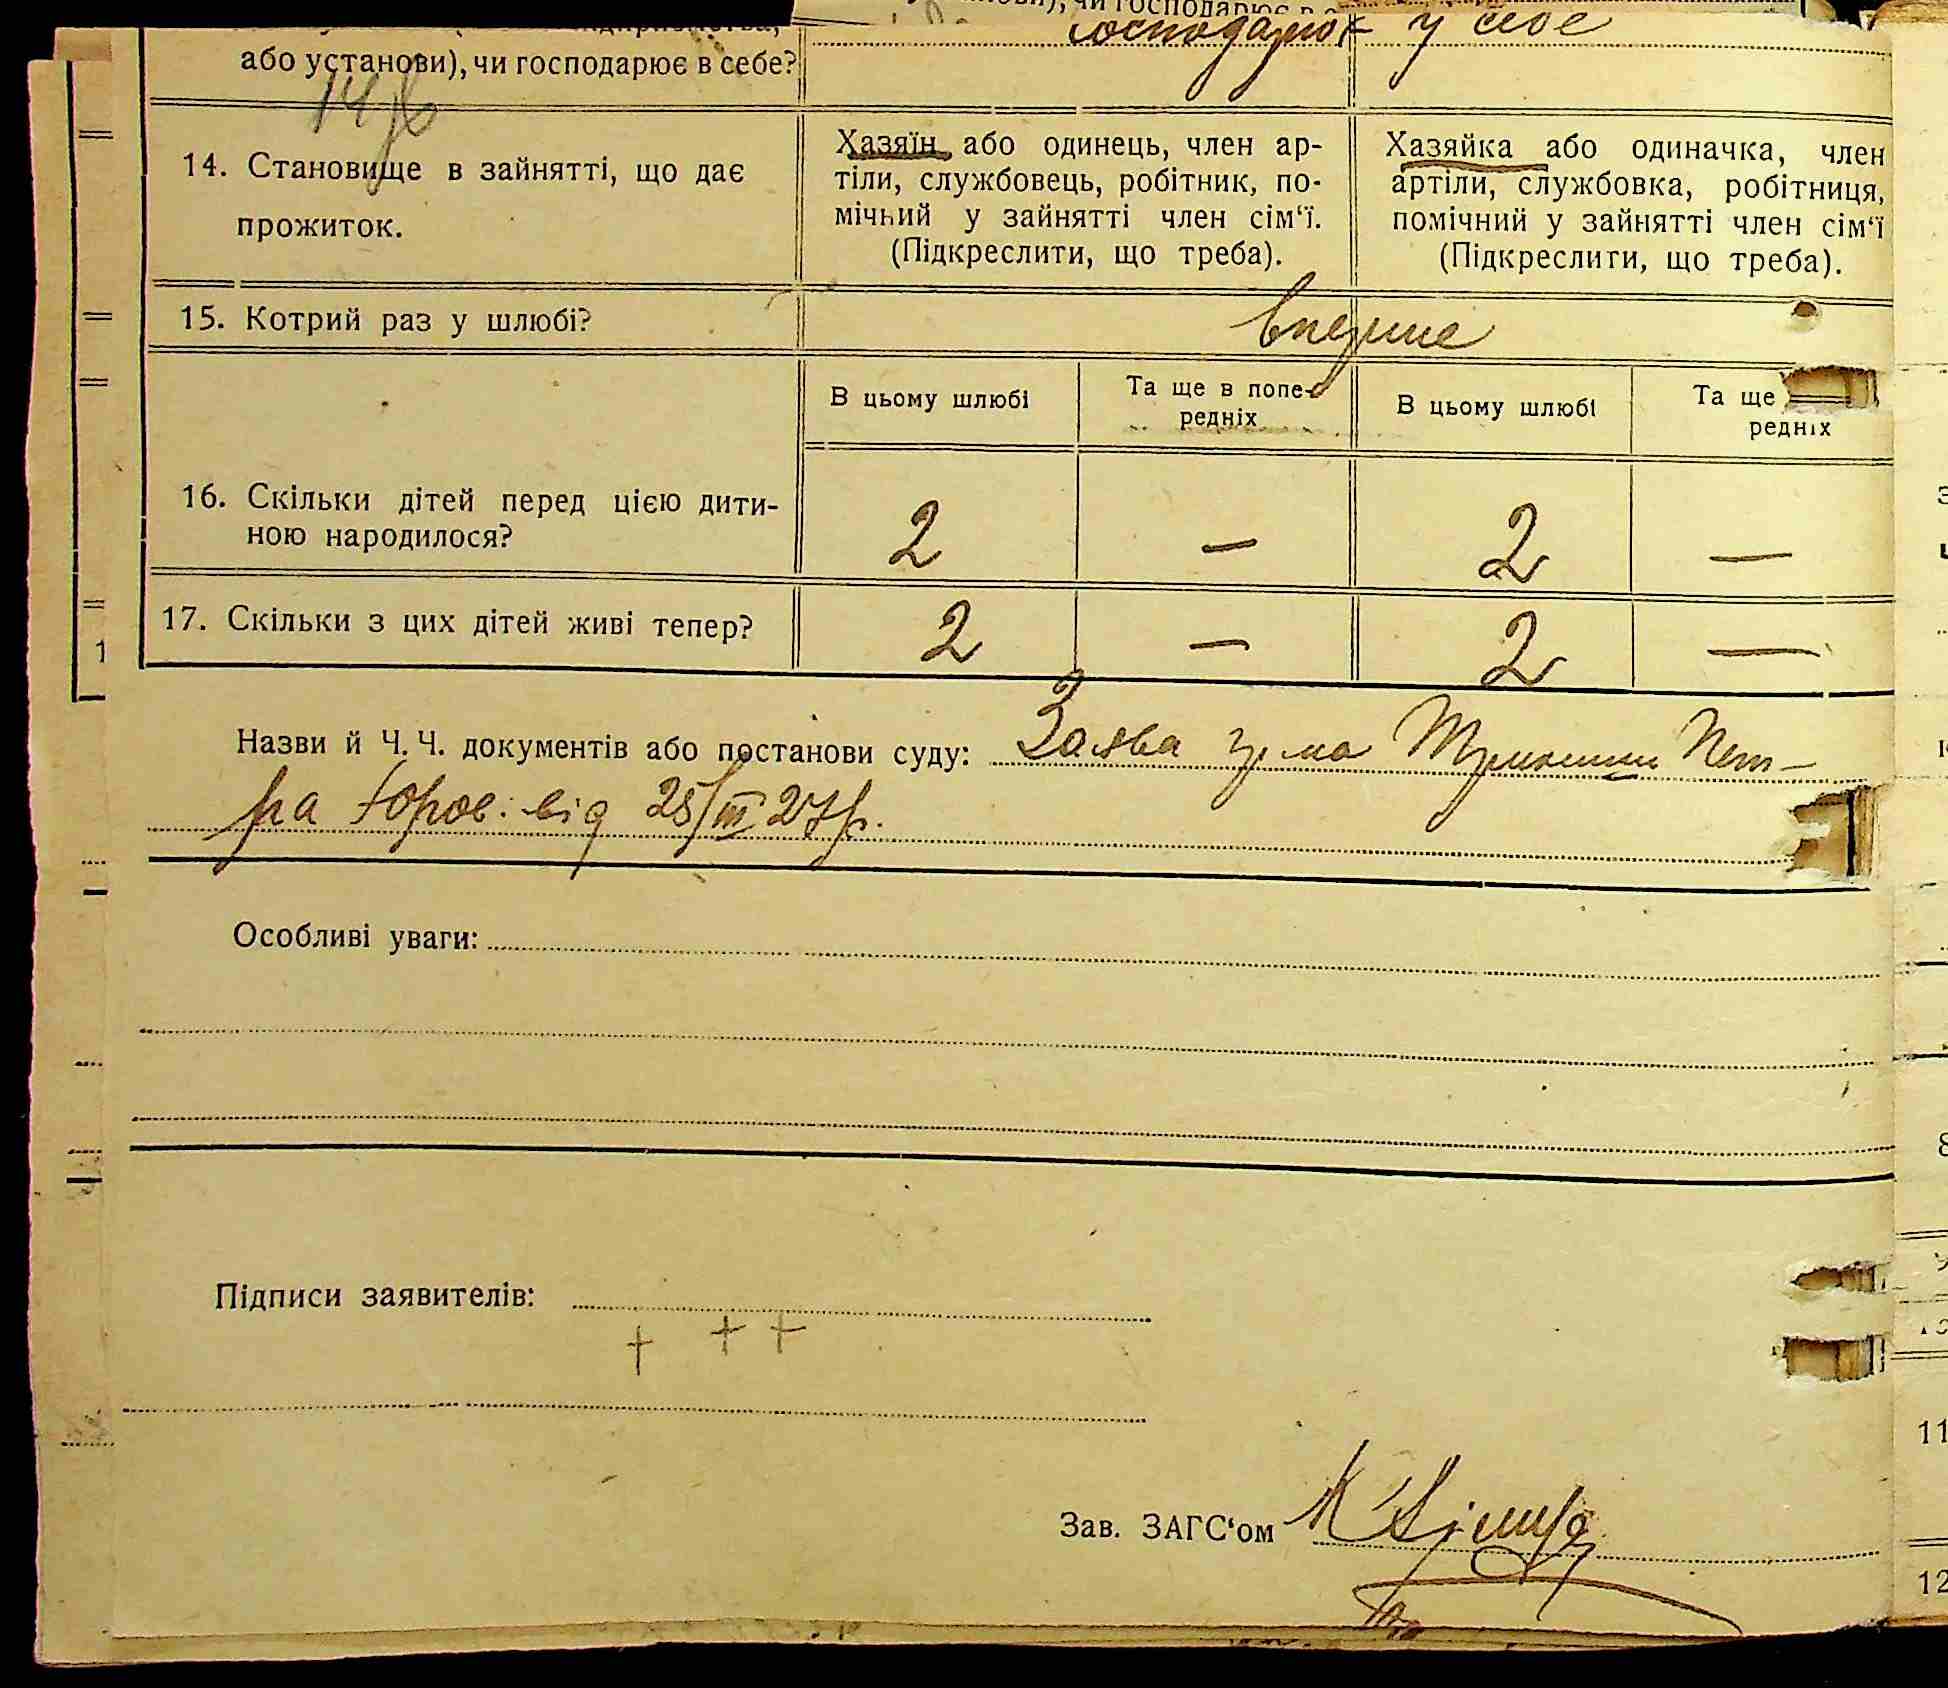 або установи), чи господарює в себе?
господарює у себе
14. Становище в зайнятті, що дає
прожиток.
Хазяїн або одинець, член ар-
тіли, службовець, робітник, по-
мічний у зайнятті член сім‘ї.
(Підкреслити, що треба).
Хазяйка або одиначка, член
артіли, службовка, робітниця,
помічний у зайнятті член сім‘ї
(Підкреслити, що треба).
15. Котрий раз у шлюбі?
вперше
В цьому шлюбі
Та ще в попе-
редніх
В цьому шлюбі
Та ще
редніх
16. Скільки дітей перед цією дити-
ною народилося?
2 — 2 —
17. Скільки з цих дітей живі тепер?
2 — 2 —
Назви й Ч. Ч. документів або постанови суду: Заява гр-на Пет-
ра Юров. від 25/III 27 р.
Особливі уваги:
Підписи заявителів:
+ + +
Зав. ЗАГС‘ом